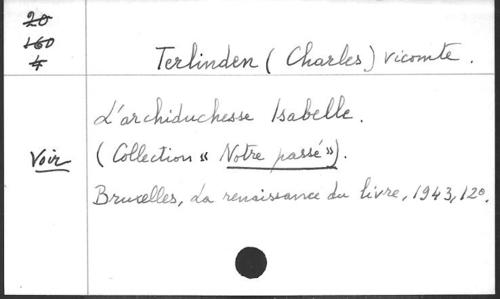 20
160
4
Terlinden (Charles) vicomte.
L'archiduchesse Isabelle.
Voir
(Collection « Notre passé »).
Bruxelles, La renaissance du livre, 1943, 12°.